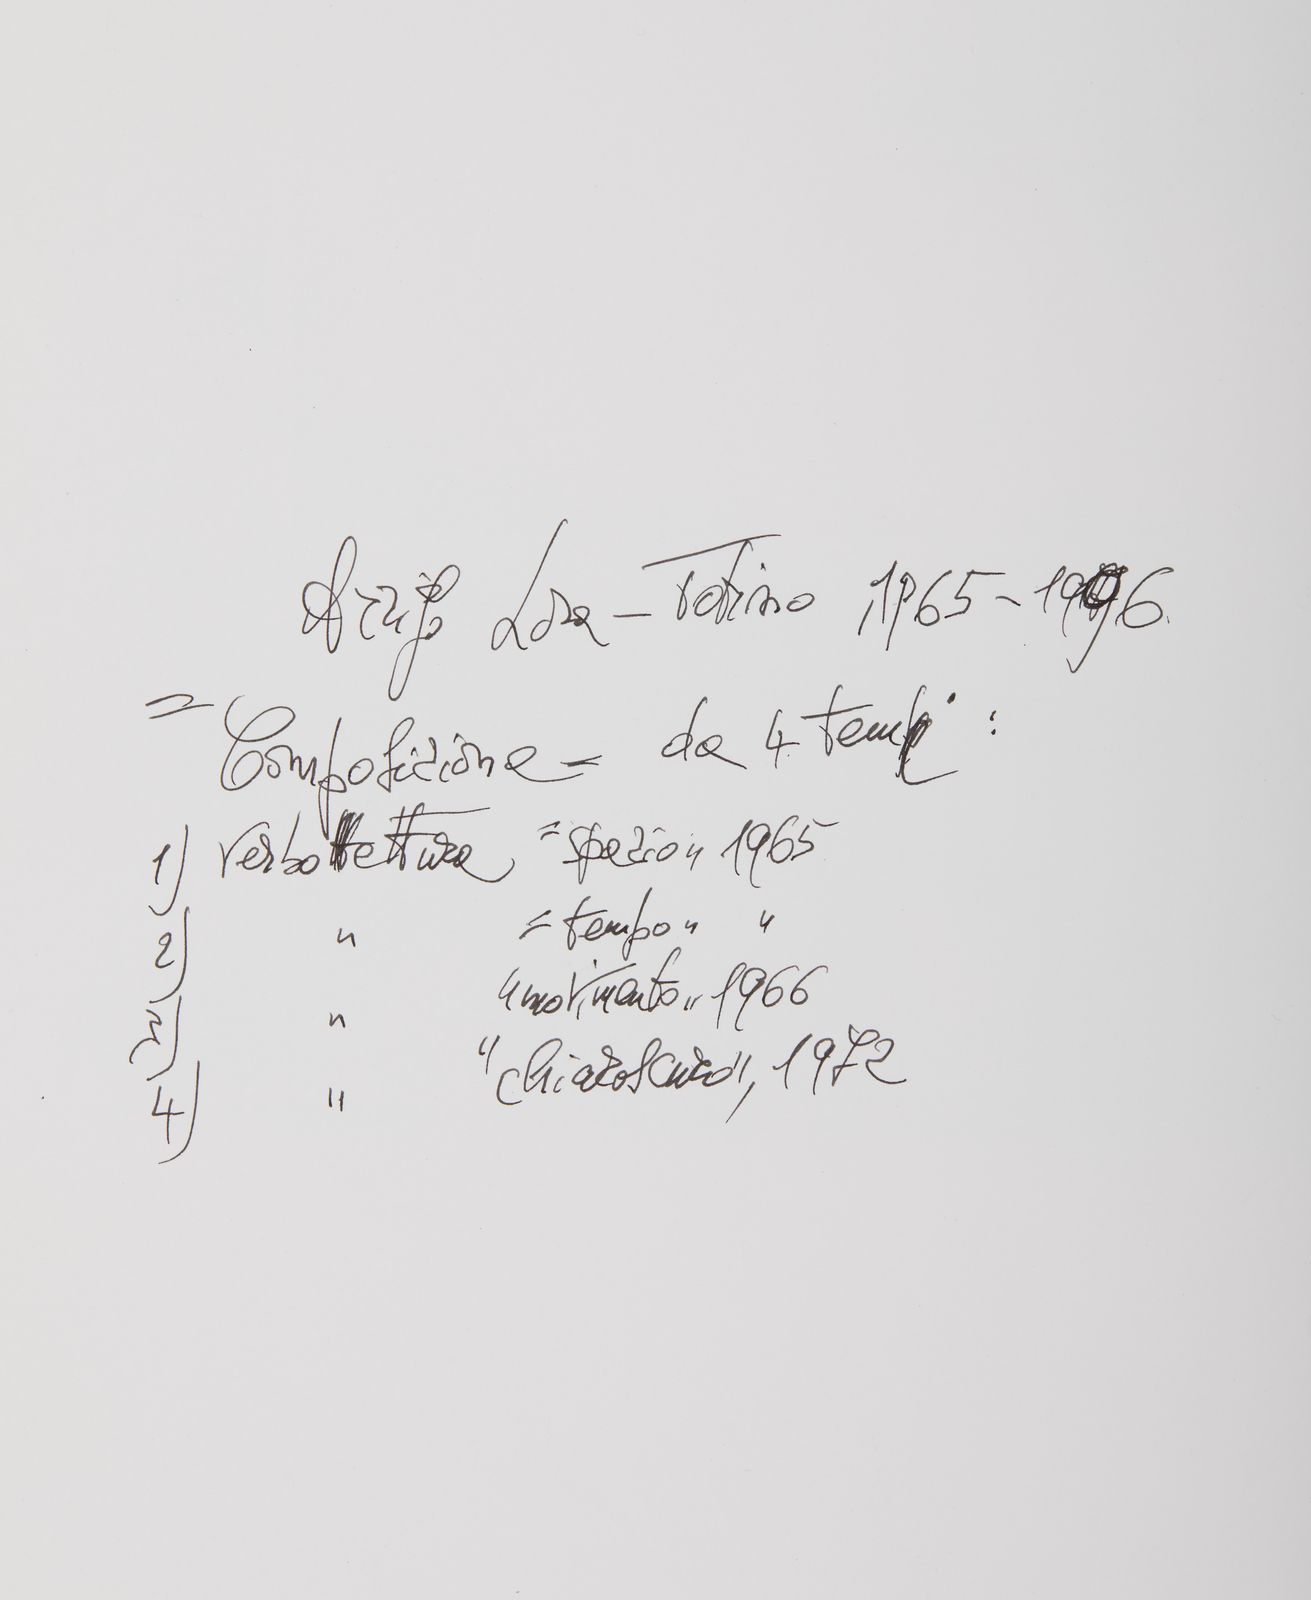 Arrigo Lora-Totino 1965-1996.
= Composizione = da 4 tempi:
1) verbotettura "spazio" 1965
2) " "tempo" "
3) " "movimento" 1966
4) " "chiaroscuro", 1972